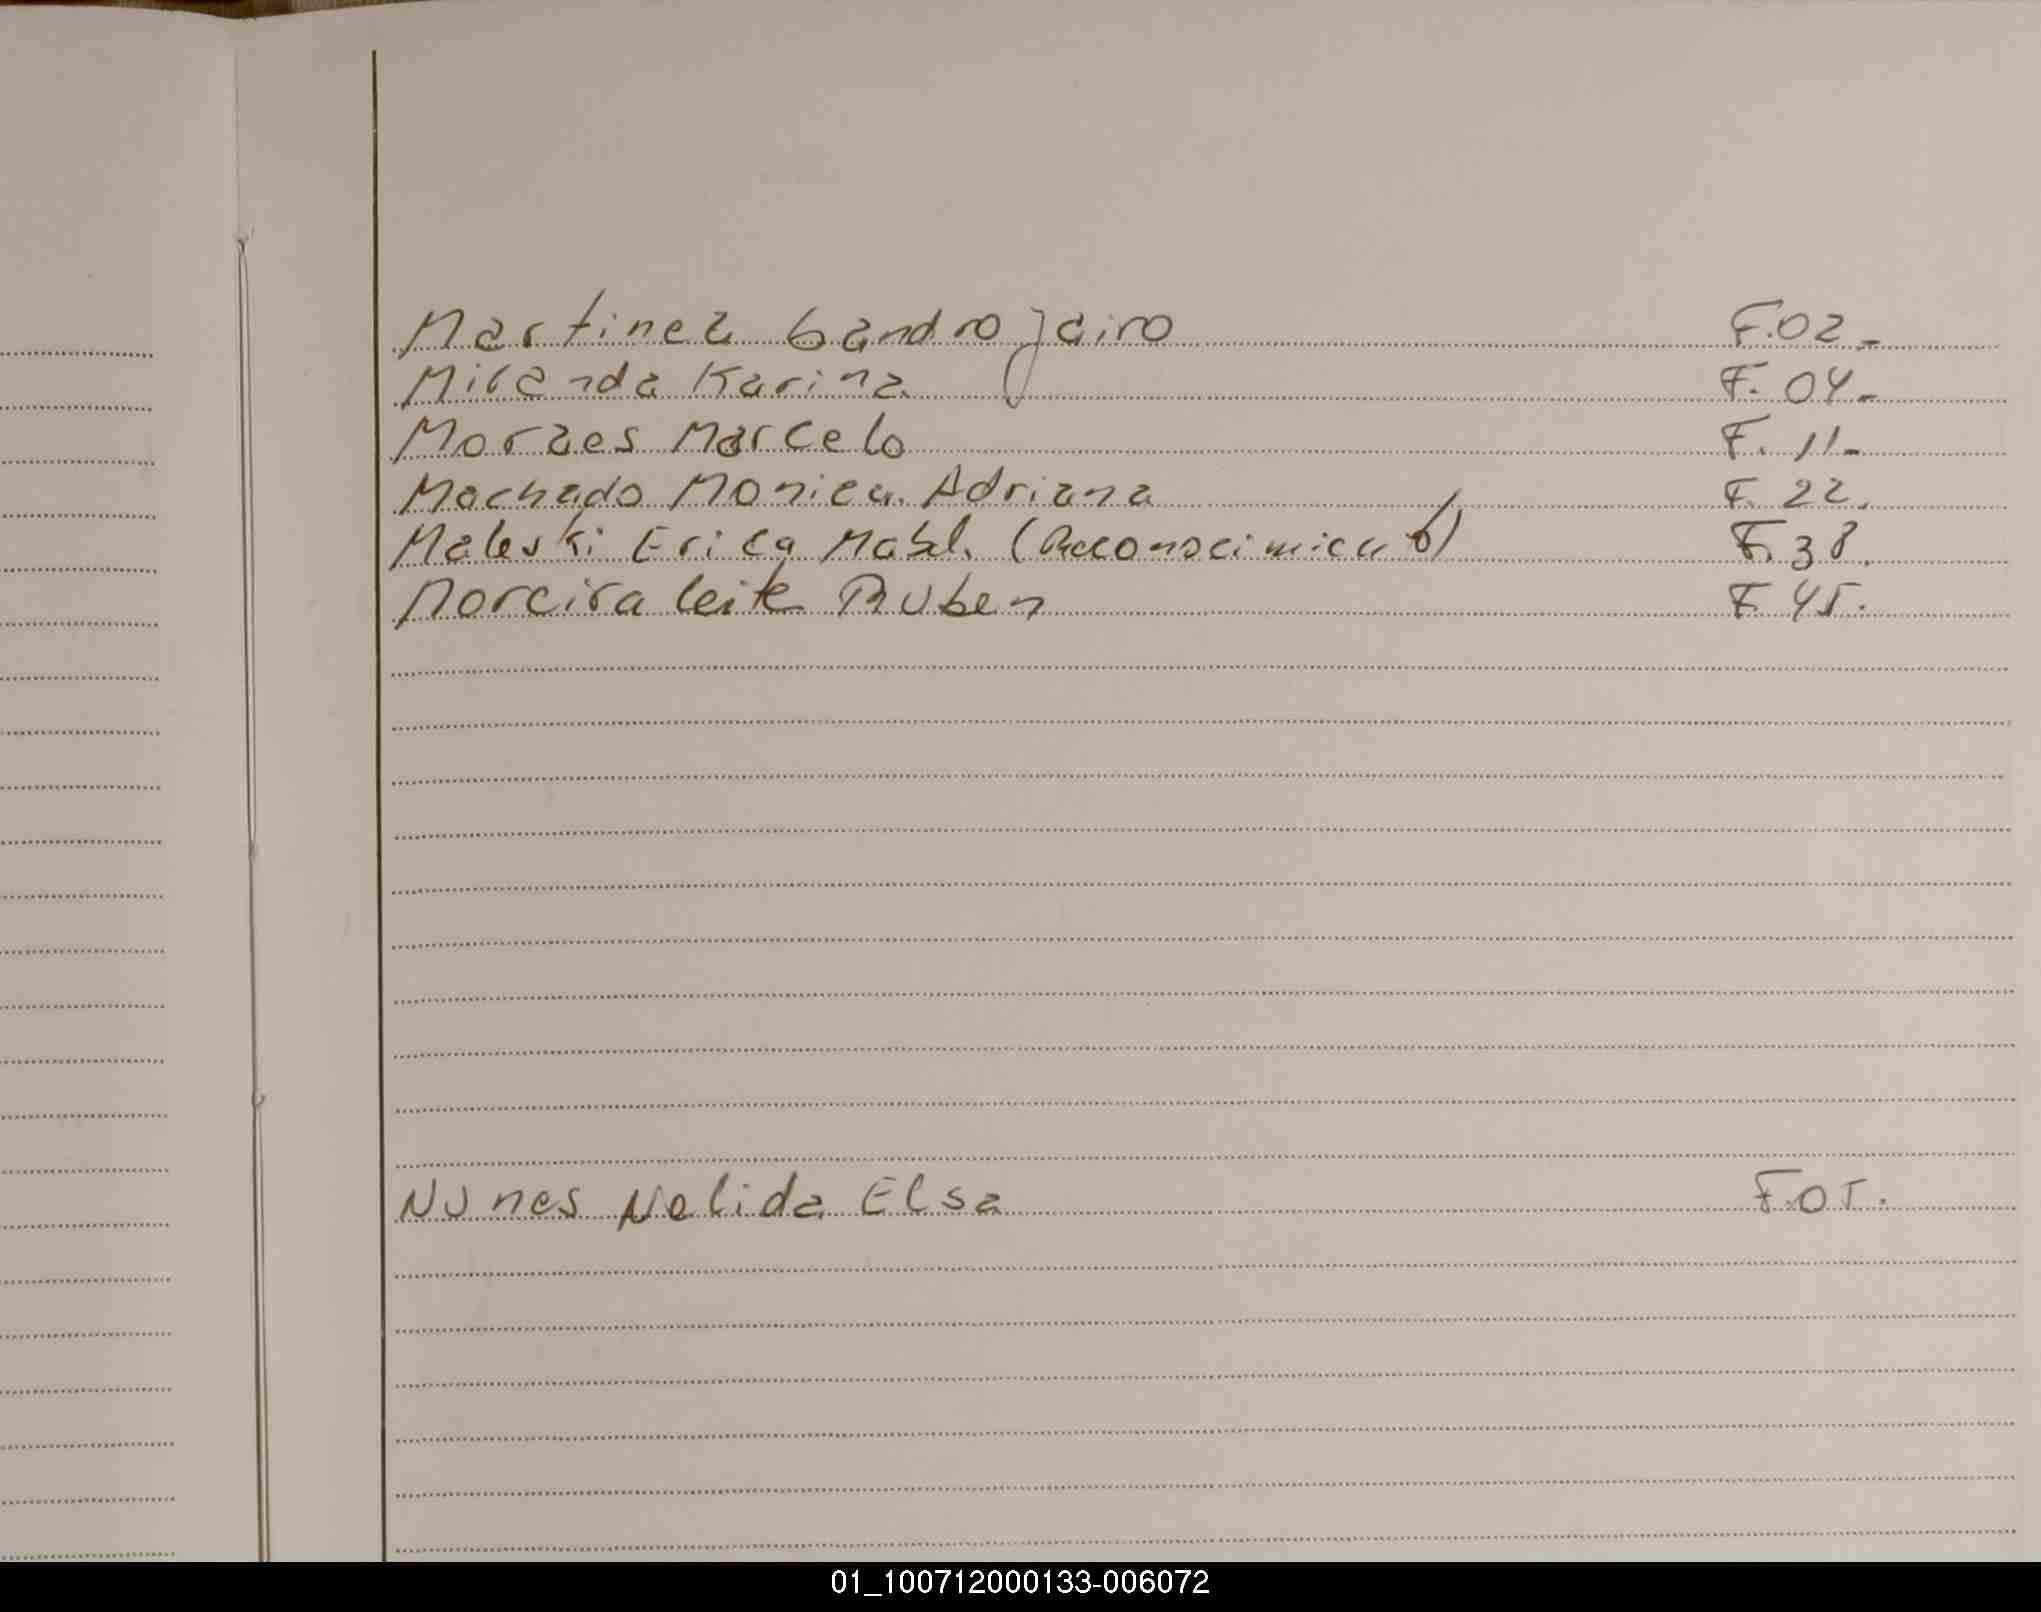 Martinez Sandro Jairo F.02-
Miranda Karina F. 04-
Moraes Marcelo F. 11-
Machado Monica Adriana F. 22.
Maleski Erica Mabl. (Reconocimiento) F. 38.
Moreira Leite Ruben F 45.
Nunes Nelida Elsa F.05.
01_100712000133-006072